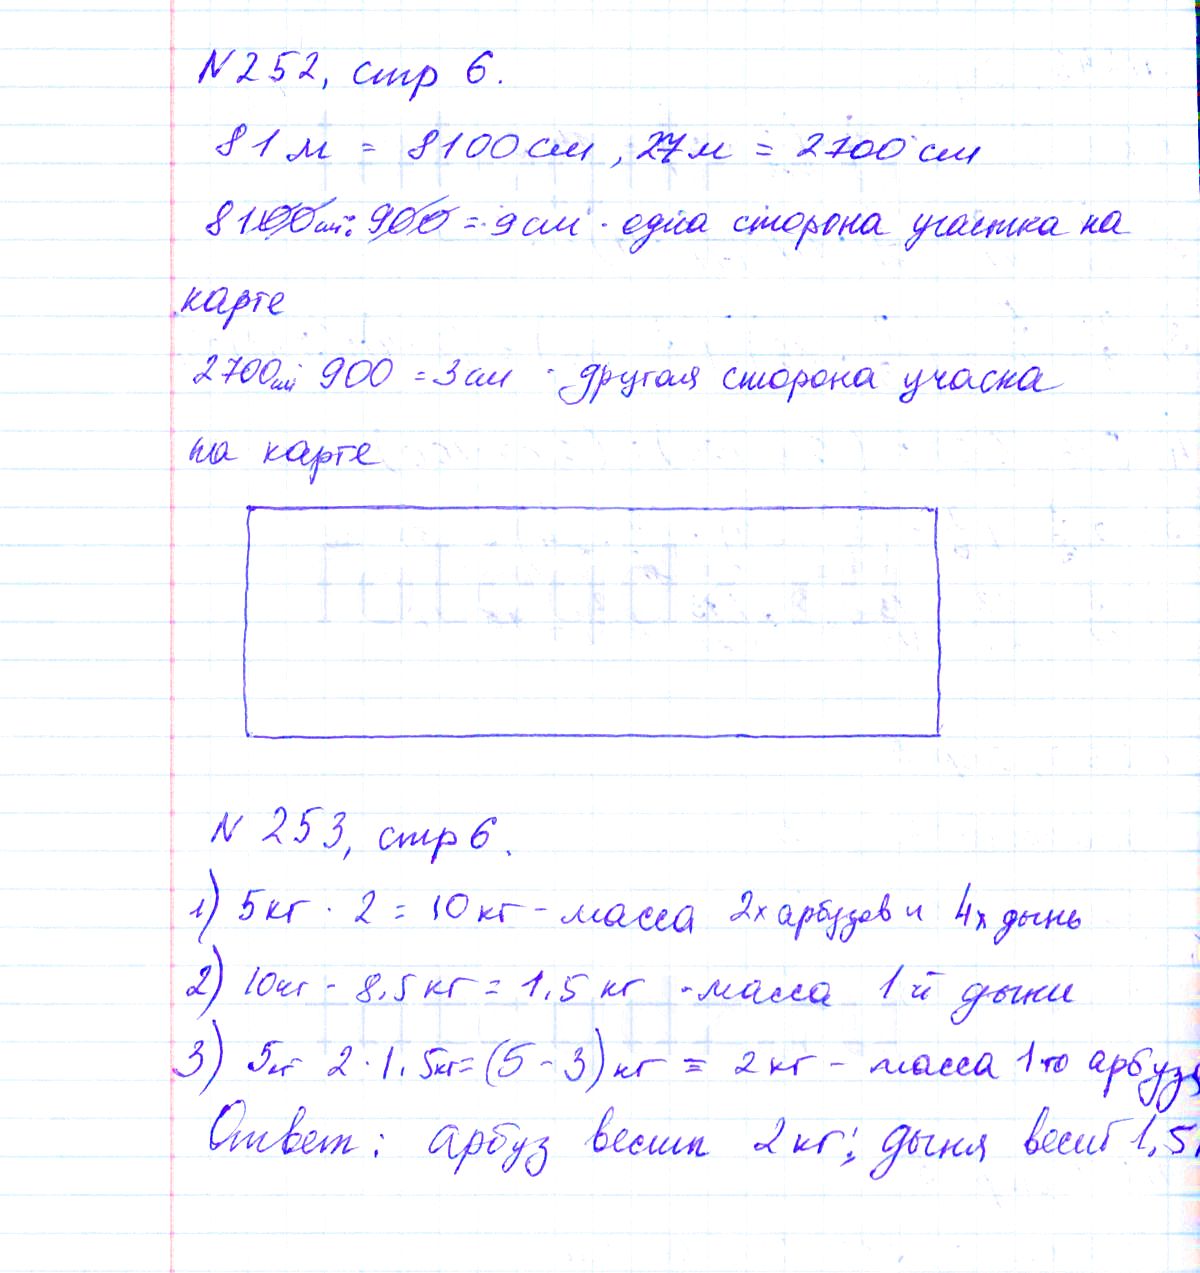 N 252, стр 6.
81 м = 8100 см, 27 м = 2700 см
8100 см : 900 = 9 см - одна сторона участка на
карте
2700 см : 900 = 3 см - другая сторона учаска
на карте
N 253, стр 6.
1) 5 кг · 2 = 10 кг - масса 2х арбузов и 4х дынь
2) 10 кг - 8,5 кг = 1,5 кг - масса 1й дыни
3) 5 кг - 2 · 1,5 кг = (5 - 3) кг = 2 кг - масса 1го арбуза
Ответ: арбуз весит 2 кг; дыня весит 1,5